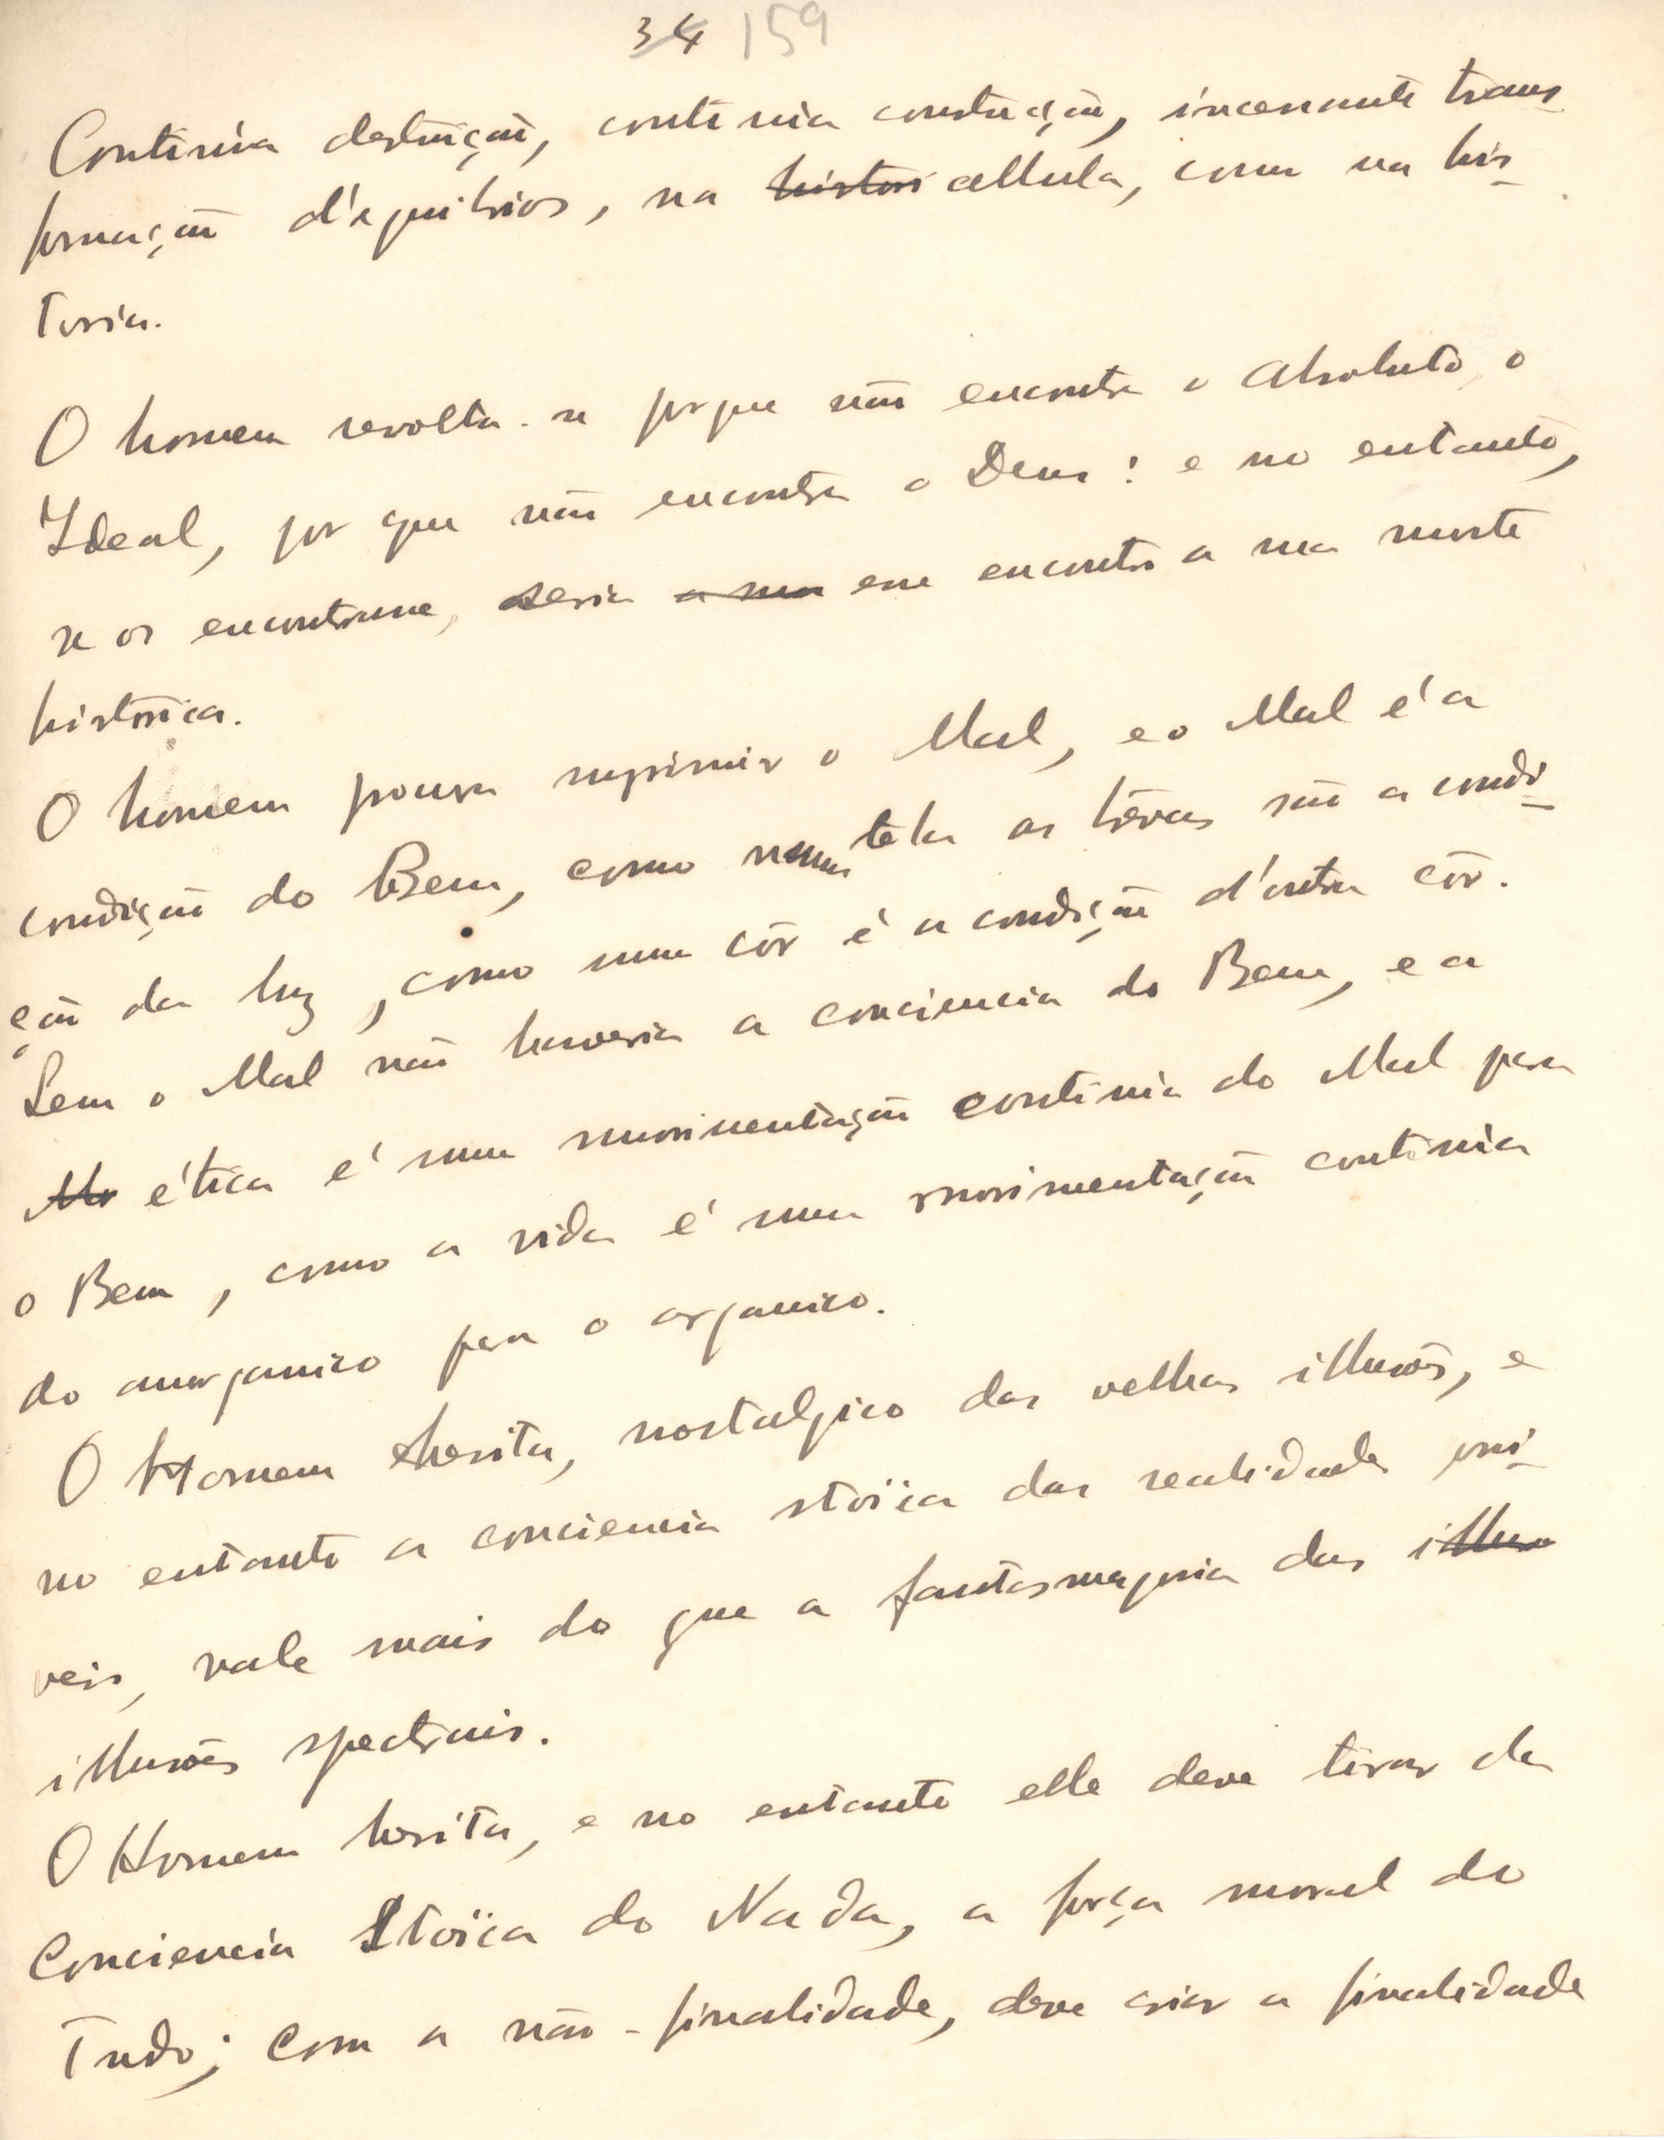 34 159
Continua destruição, continua construcção, incessante trans
formação d'equilibrios, na histori cellula, como na his-
toria.
O homem revolta-se porque não encontra o Absoluto, o
Ideal, por que não encontra o Deus: e no entanto,
se os encontrasse, seria a sua esse encontro a sua morte
historica.
O homem pensa suprimir o Mal, e o Mal é a
condição do Bem, como numa tela as trévas são a condi-
ção da luz, como uma côr é a condição d'outra côr.
Sem o Mal não haveria a conciencia do Bem, e a
Mo ética é uma movimentação continua do Mal para
o Bem, como a vida é uma movimentação continua
do anorganico para o organico.
O Homem hesita, nostalgico das velhas illusões, e
no entanto a conciencia stoïca das realidades possi-
veis, vale mais do que a fantasmagoria das illuso
illusões spectrais.
O Homem hesita, e no entanto elle deve tirar da
Conciencia Stoïca do Nada, a força moral do
Tudo; com a não-finalidade, deve criar a finalidade